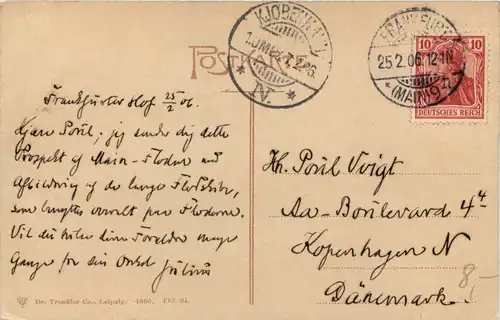 KJØBENHAVN
N.
POSTKARTE
FRANKFURT
25 2.06. 12-1N
* (MAIN) 9
10 10
DEUTSCHES REICH
Frankfurter Hof 25/2 06.
Kjære Poul; jeg sender dig dette
Prospekt af Main-Floden med
Afbildning af de lange Flodskibe,
som benyttes overalt paa Floderne.
Vil du hilse dine Forældre mange
Gange fra din Onkel Julius
Hr. Poul Voigt
Aa-Boulevard 4 4
Kopenhagen N
Dänemark.
8,-
Dr. Trenkler Co., Leipzig. 1905. Fve. 94.